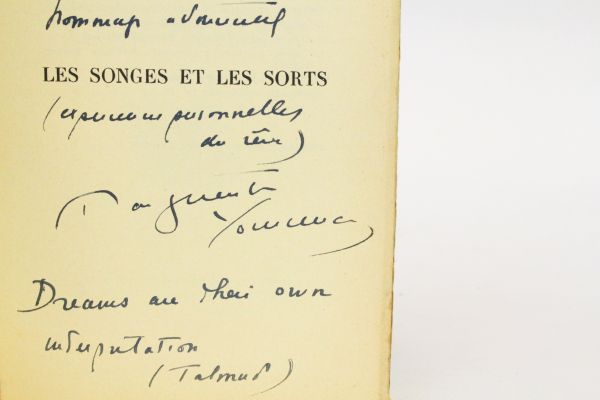 hommage
LES SONGES ET LES SORTS
(expériences personnelles
du rêve)
Marguerite
Yourcenar
Dreams are their own
interpretation
(Talmud)